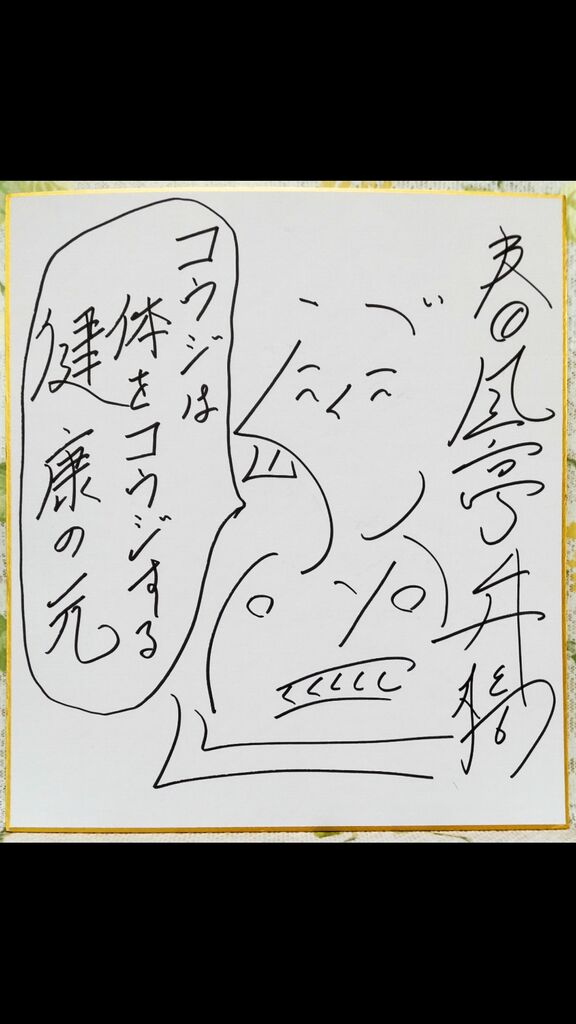 春風亭弁橋
コウジは
体をコウジする
健康の元